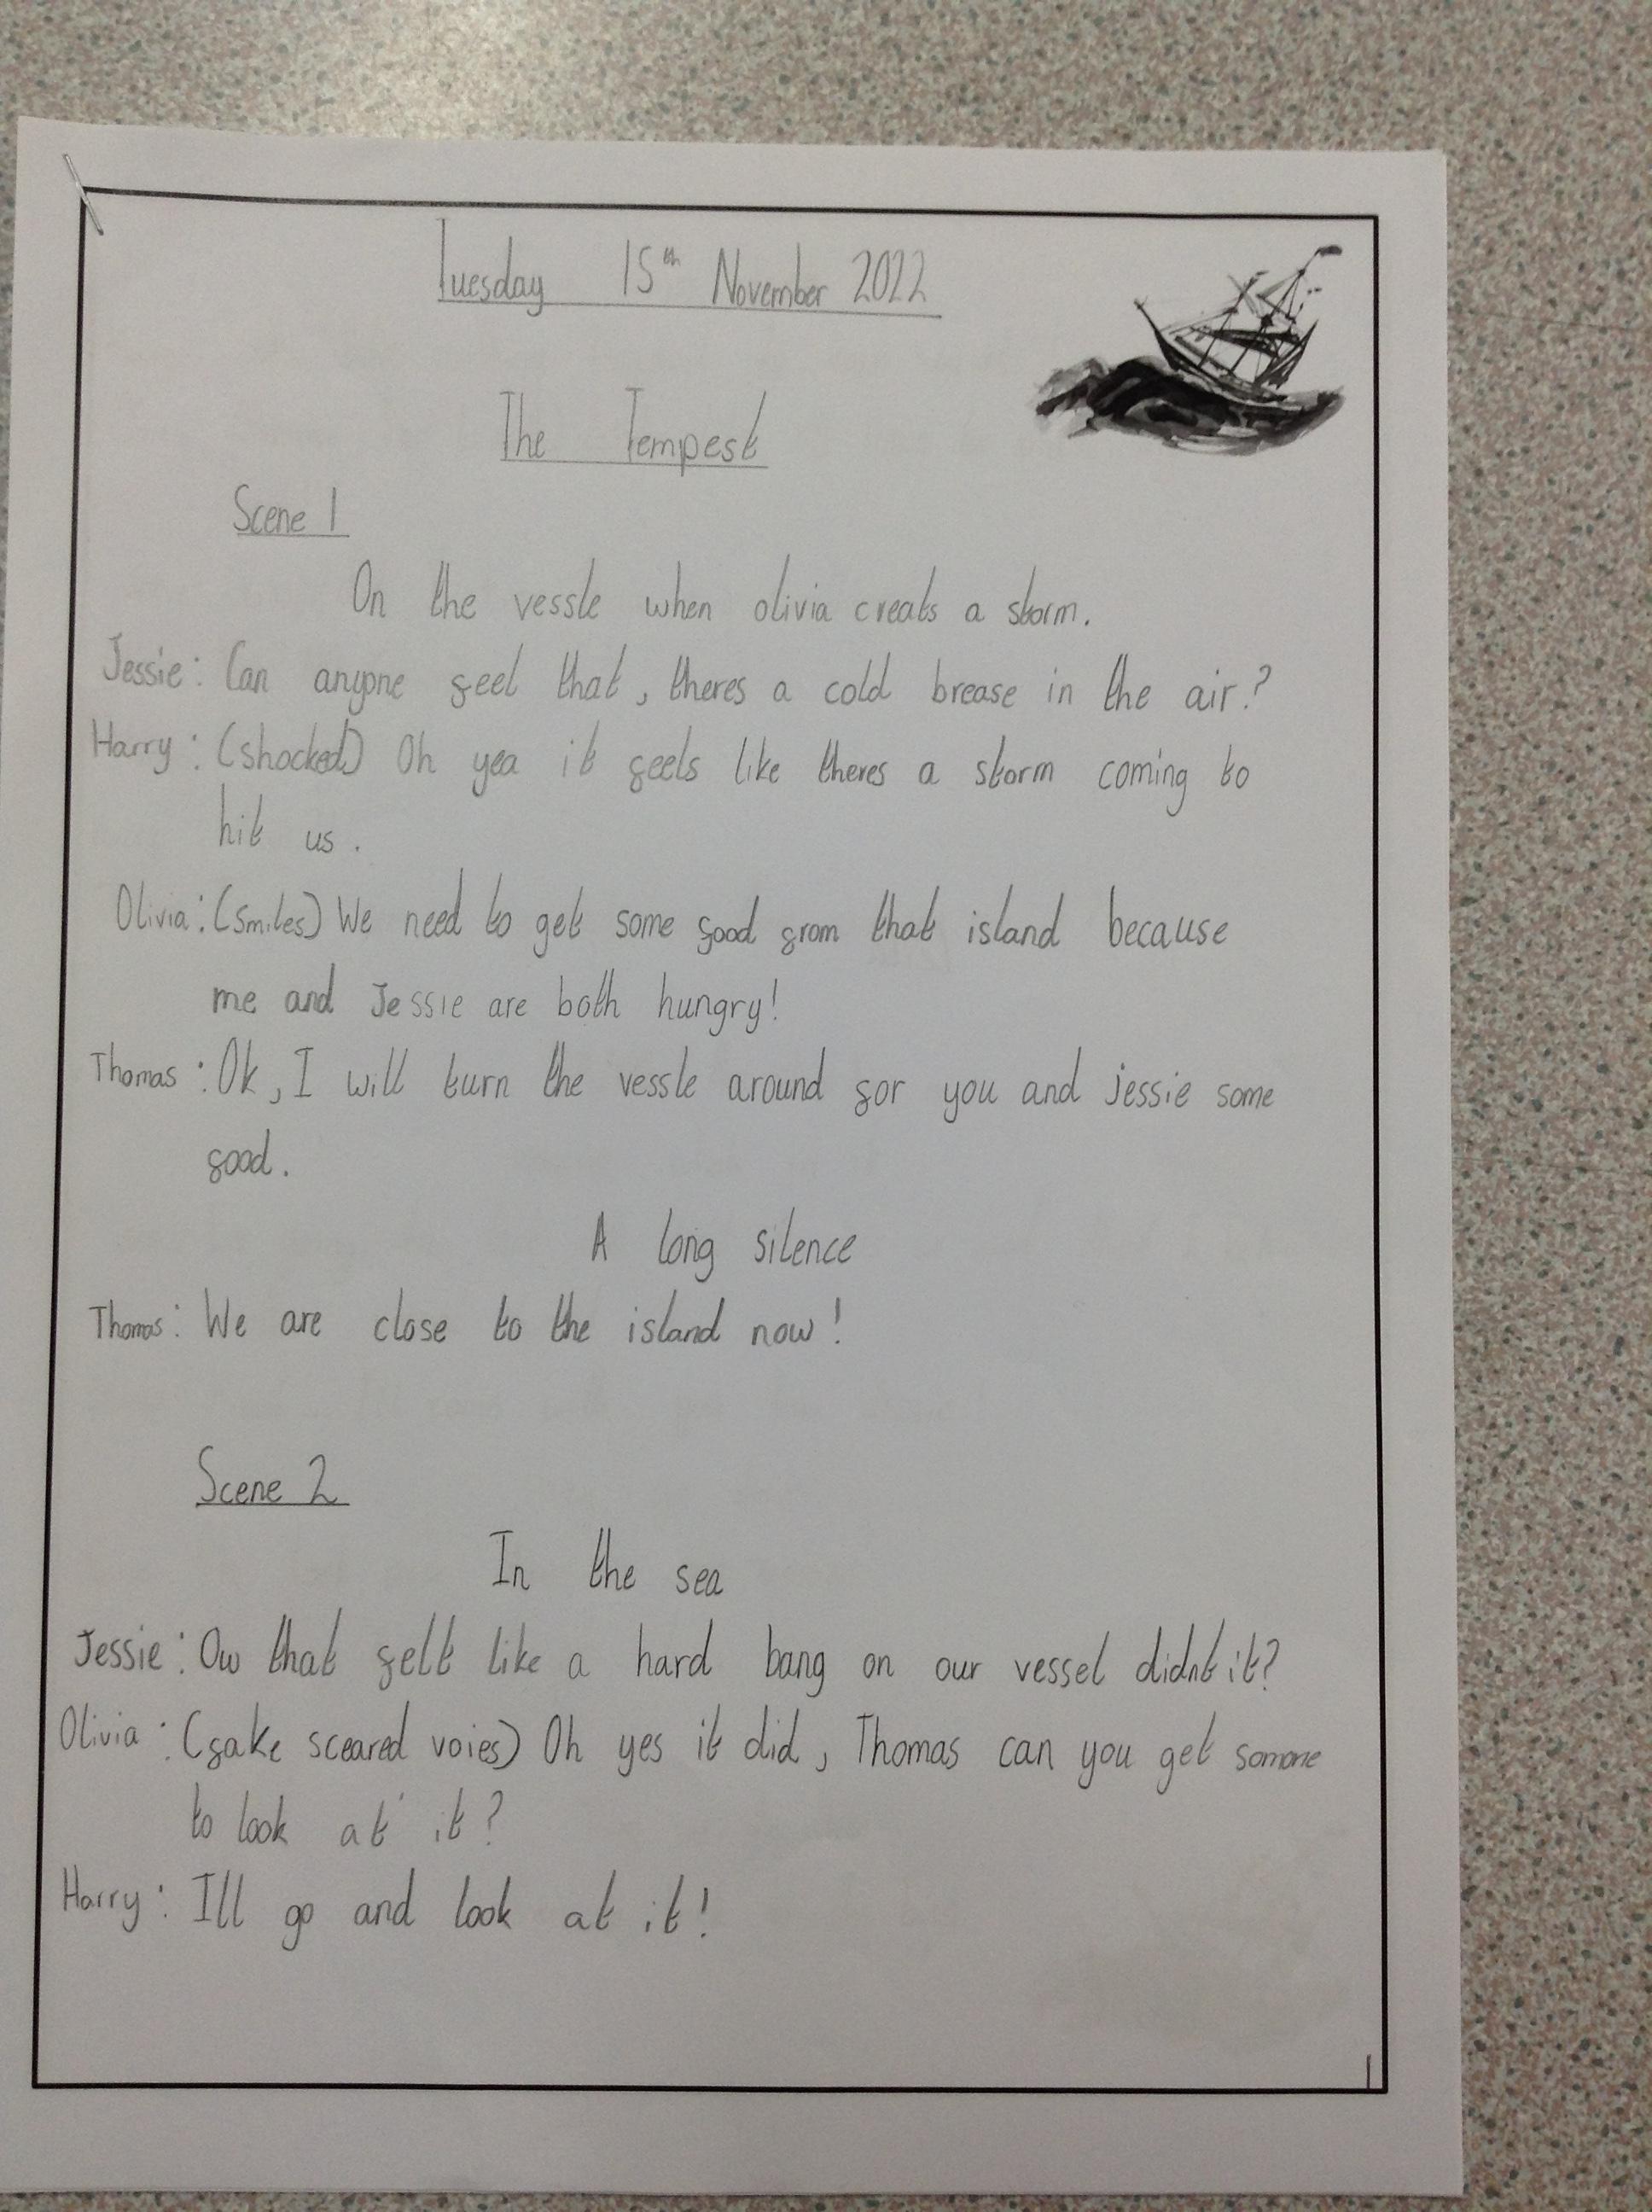 Tuesday 15th November 2022
The Tempest
Scene 1
On the vessle when olivia creats a storm.
Jessie: Can anyone feel that, theres a cold brease in the air?
Harry: (shocked) Oh yea it feels like theres a storm coming to
hit us.
Olivia: (smiles) We need to get some food from that island because
me and Jessie are both hungry!
Thomas: Ok, I will turn the vessle around for you and jessie some
food.
A long silence
Thomas: We are close to the island now!
Scene 2
In the sea
Jessie: Ow that felt like a hard bang on our vessel didnt it?
Olivia: (fake sceared voies) Oh yes it did, Thomas can you get somone
to look at it?
Harry: Ill go and look at it!
1